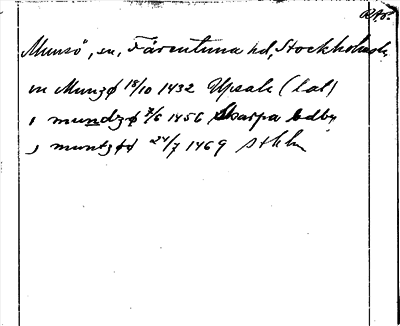 RAp.
Munsö, sn, Färentuna hd, Stockholms l.
in Munzø 18/10 1432 Upsala (lat)
, mundzø 7/6 1456 Skarpa Edby
, muntzøø 24/7 1469 Sthlm